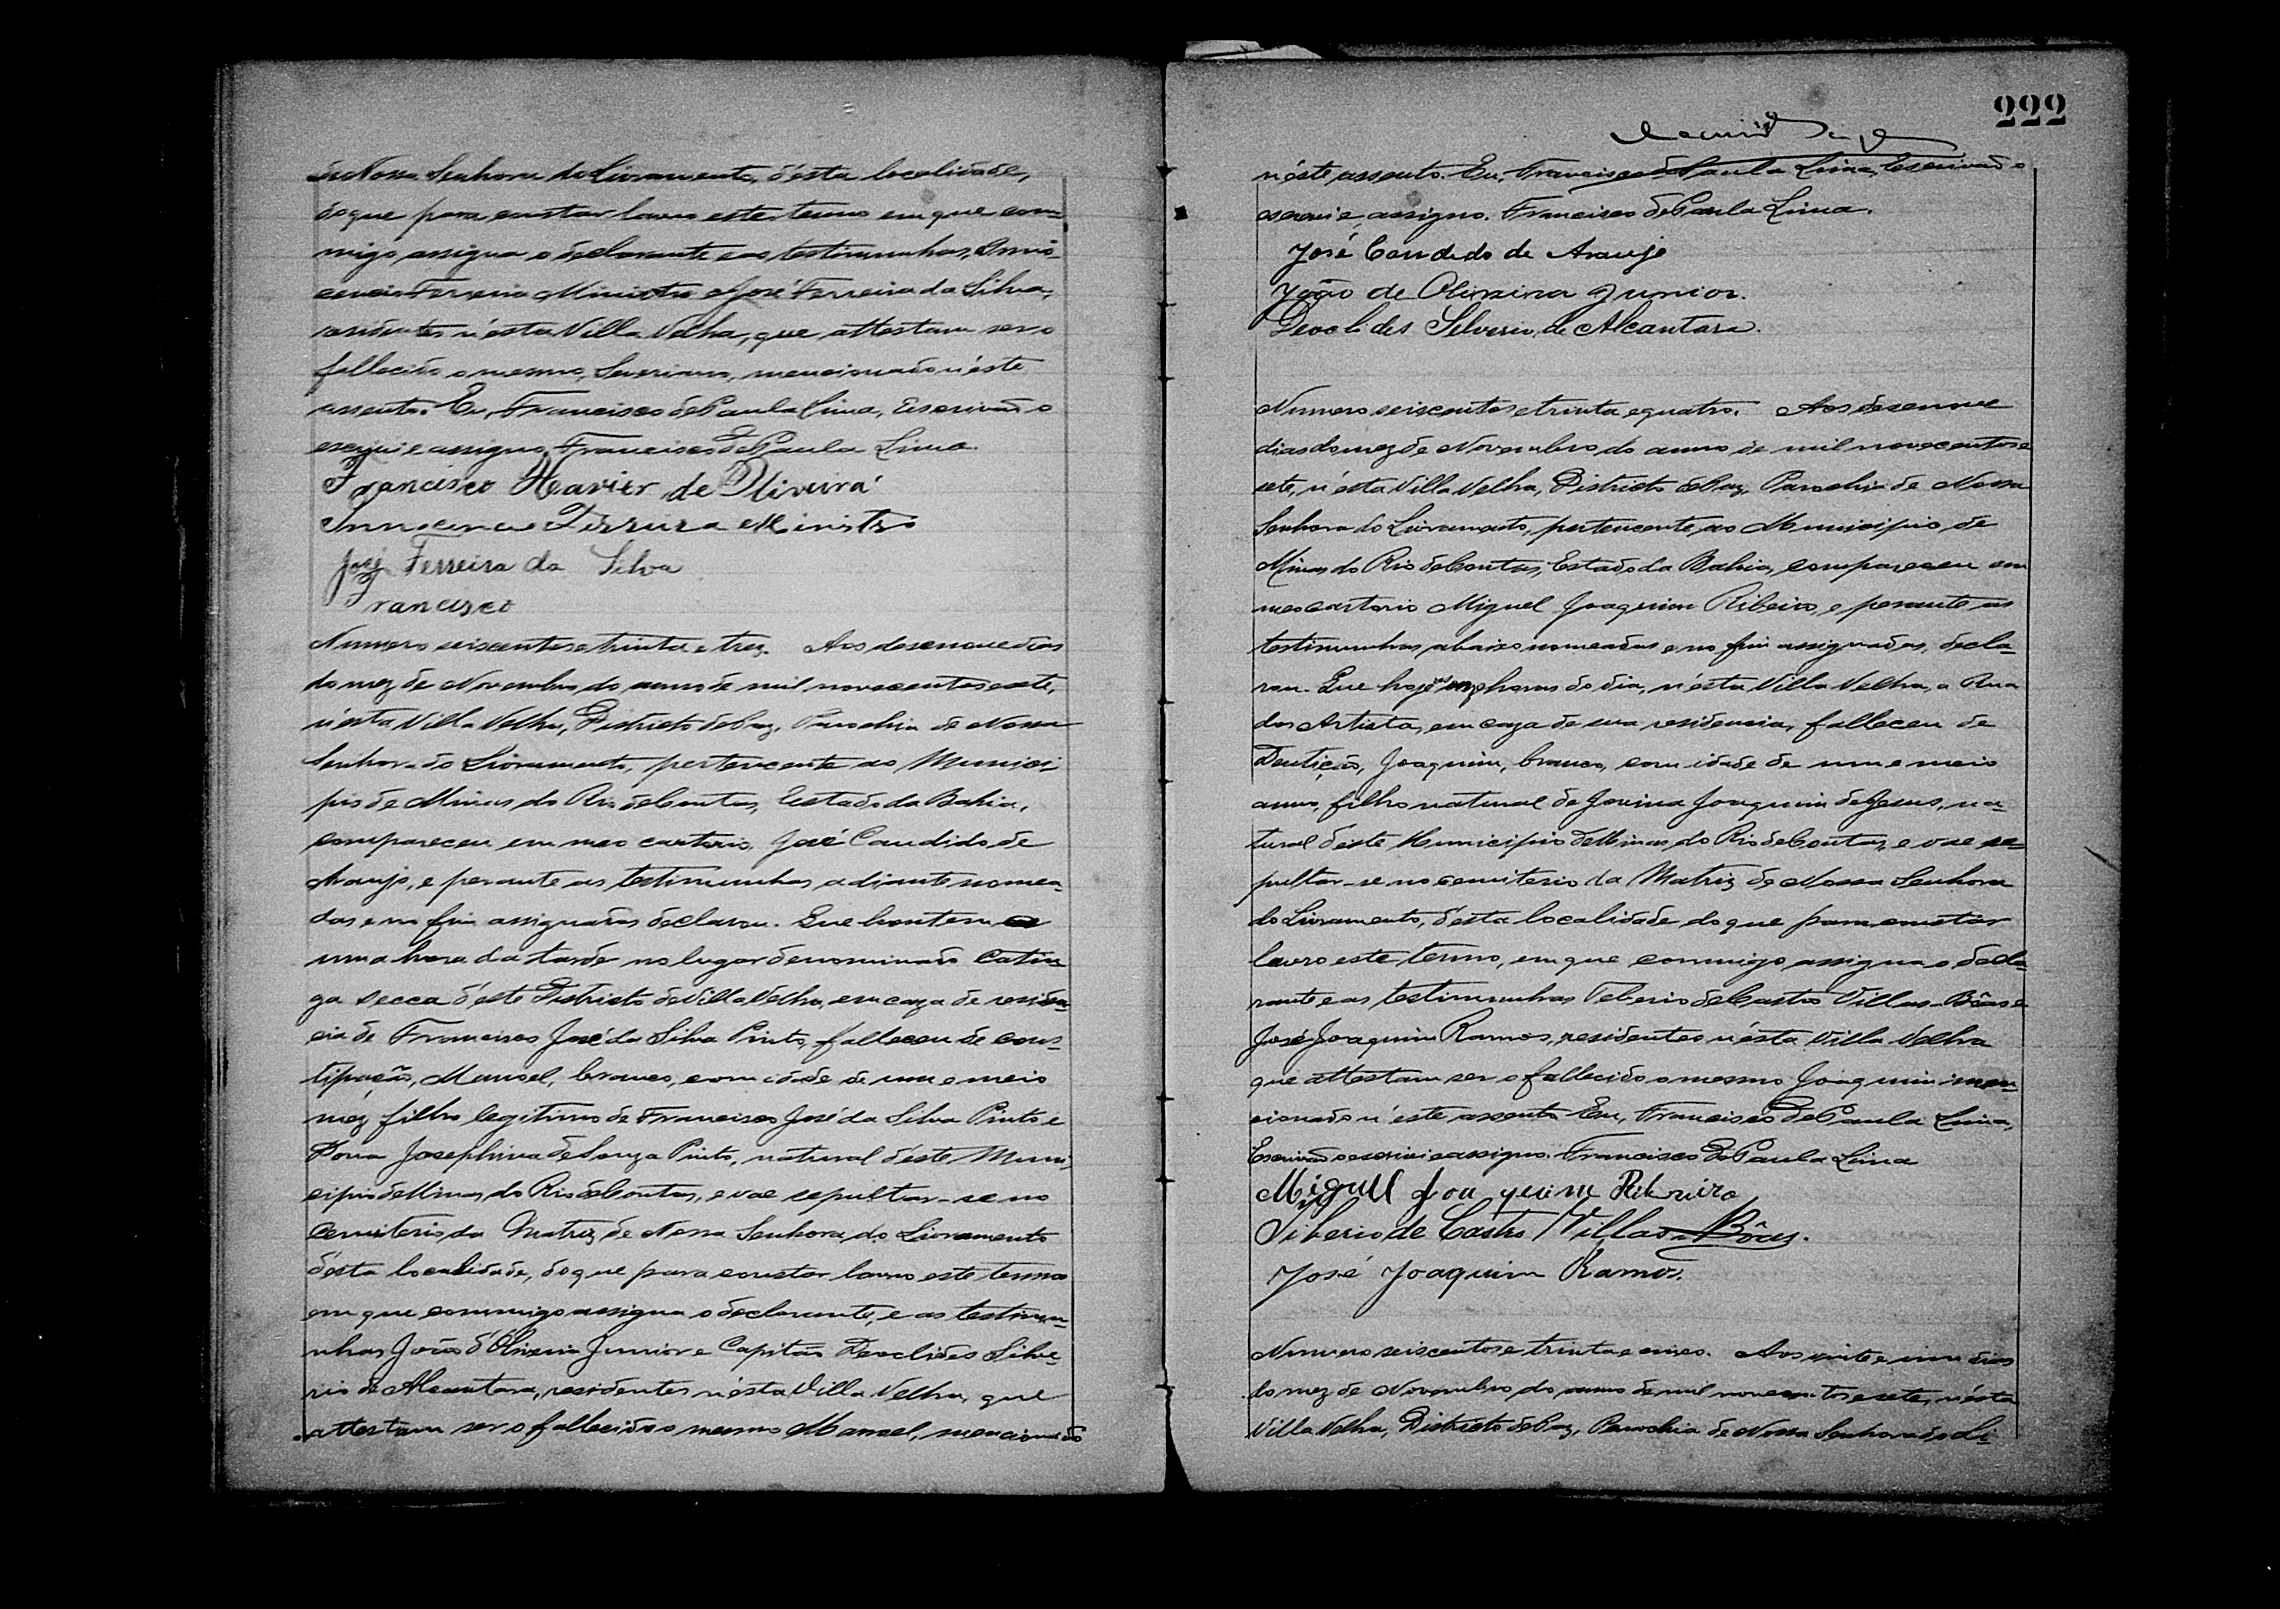 de Nossa Senhora do Livramento, d'ésta localidade,
do que para constar lavro este termo em que com-
migo assigna o declarante e as testimunhas, Inno-
cencio Ferreira Ministro e José Ferreira da Silva,
residentes n'ésta Villa Velha, que attestam ser o
fallecido o mesmo, Severiano, mencionado n'éste
assento. Eu, Francisco de Paula Lima, Escrivão o
escrivi e assigno. Francisco de Paula Lima.
Francisco Xavier de Oliveira
Innocencio Ferreira Ministro
José Ferreira da Silva
Francisco
Numero seiscentos e trinta e trez. Aos desenove dias
do mez de Novembro do anno de mil novecentos e sete,
n'ésta Villa Velha, Districto de Paz, Parochia de Nossa
Senhora do Livramento, pertencente ao Munici-
pio de Minas do Rio de Contas, Estado da Bahia,
compareceu em meo cartorio, José Candido de
Araujo, e perante as testimunhas adiante nomea-
das e no fim assignadas declarou. Que hontem a
uma hora da tarde no lugar denominado Catin-
ga secca d'éste Districto de Villa Velha, em caza de residen-
cia de Francisco José da Silva Pinto, falleceu de cons-
tipação, Manoel, branco, com idade de um e meio
mez, filho legitimo de Francisco José da Silva Pinto e
Dona Josephina de Souza Pinto, natural d'éste Muni-
cipio de Minas do Rio de Contas, e vae sepultar-se no
Cemiterio da Matriz de Nossa Senhora do Livramento
d'ésta localidade, do que para constar lavro este termo
em que commigo assigna o declarante, e as testimu-
nhas João d'Oliveira Junior e Capitão Deoclides Silve-
rio de Alcantara, residentes n'ésta Villa Velha, que
attestam ser o fallecido o mesmo Manoel, mencionado
222
n'éste assento. Eu, Francisco de Paula Lima, Escrivão o
escrevi e assigno. Francisco de Paula Lima.
José Candido de Araujo
João de Oliveira Junior.
Deoclides Silverio de Alcantara.
Numero seiscentos e trinta e quatro. Aos desenove
dias do mez de Novembro do anno de mil novecentos e
sete, n'ésta Villa Velha, Districto de Paz, Parochia de Nossa
Senhora do Livramento, pertencente ao Municipio de
Minas do Rio de Contas, Estado da Bahia, compareceu em
meo cartorio Miguel Joaquim Ribeiro, e perante as
testimunhas abaixo nomeadas e no fim assignadas, decla-
rou. Que hoje as onze horas do dia, n'ésta Villa Velha, a Rua
dos Artista, em caza de sua residencia, falleceu de
Dentição, Joaquim, branco, com idade de um e meio
anno, filho natural de Jovina Joaquim de Jesus, na-
tural d'éste Municipio de Minas do Rio de Contas, e vae se-
pultar-se no cemiterio da Matriz de Nossa Senhora
do Livramento, d'ésta localidade do que para constar
lavro este termo, em que commigo assigna o decla-
rante e as testimunhas Teberio de Castro Villas-Bôas e
José Joaquim Ramos, residentes n'ésta Villa Velha
que attestam ser o fallecido o mesmo Joaquim men-
cionado n'éste assento Eu, Francisco de Paula Lima,
Escrivão o escrivi e assigno. Francisco de Paula Lima
Miguel Joaquim Ribeiro
Tiberio de Castro Villas-Bôas.
José Joaquim Ramos.
Numero seiscentos e trinta e cinco. Aos vinte e um dias
do mez de Novembro do anno de mil novecentos e sete, n'ésta
Villa Velha, Districto de Paz, Parochia de Nossa Senhora do Li-